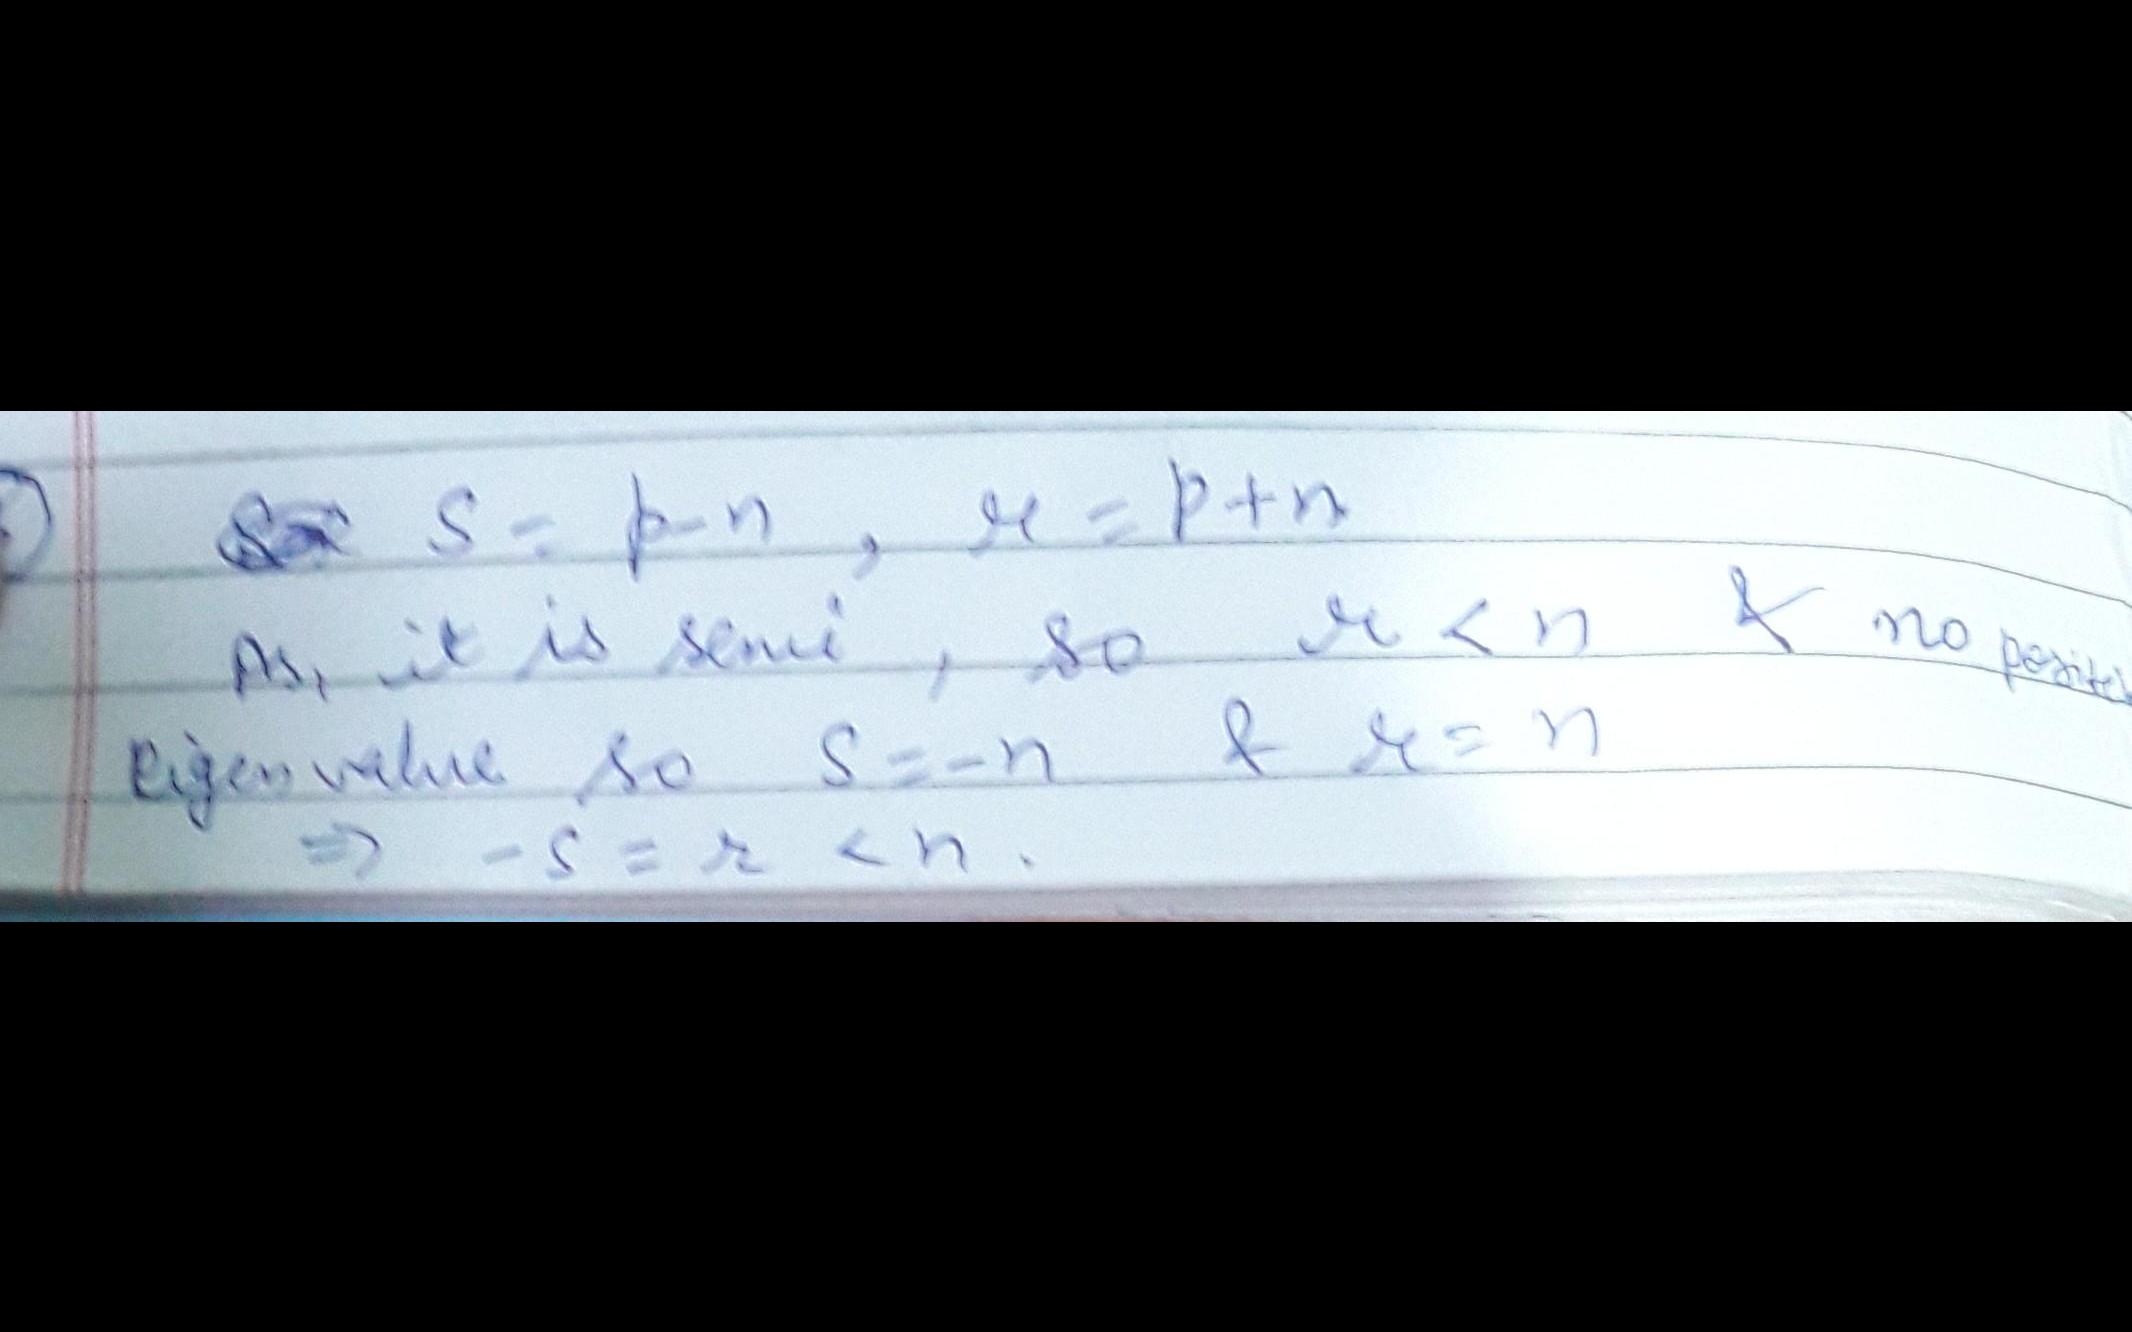 S = p-n , r = p+n
As, it is semi , so r < n & no
Eigen value so S = -n & r = n
⇒ -S = r < n .